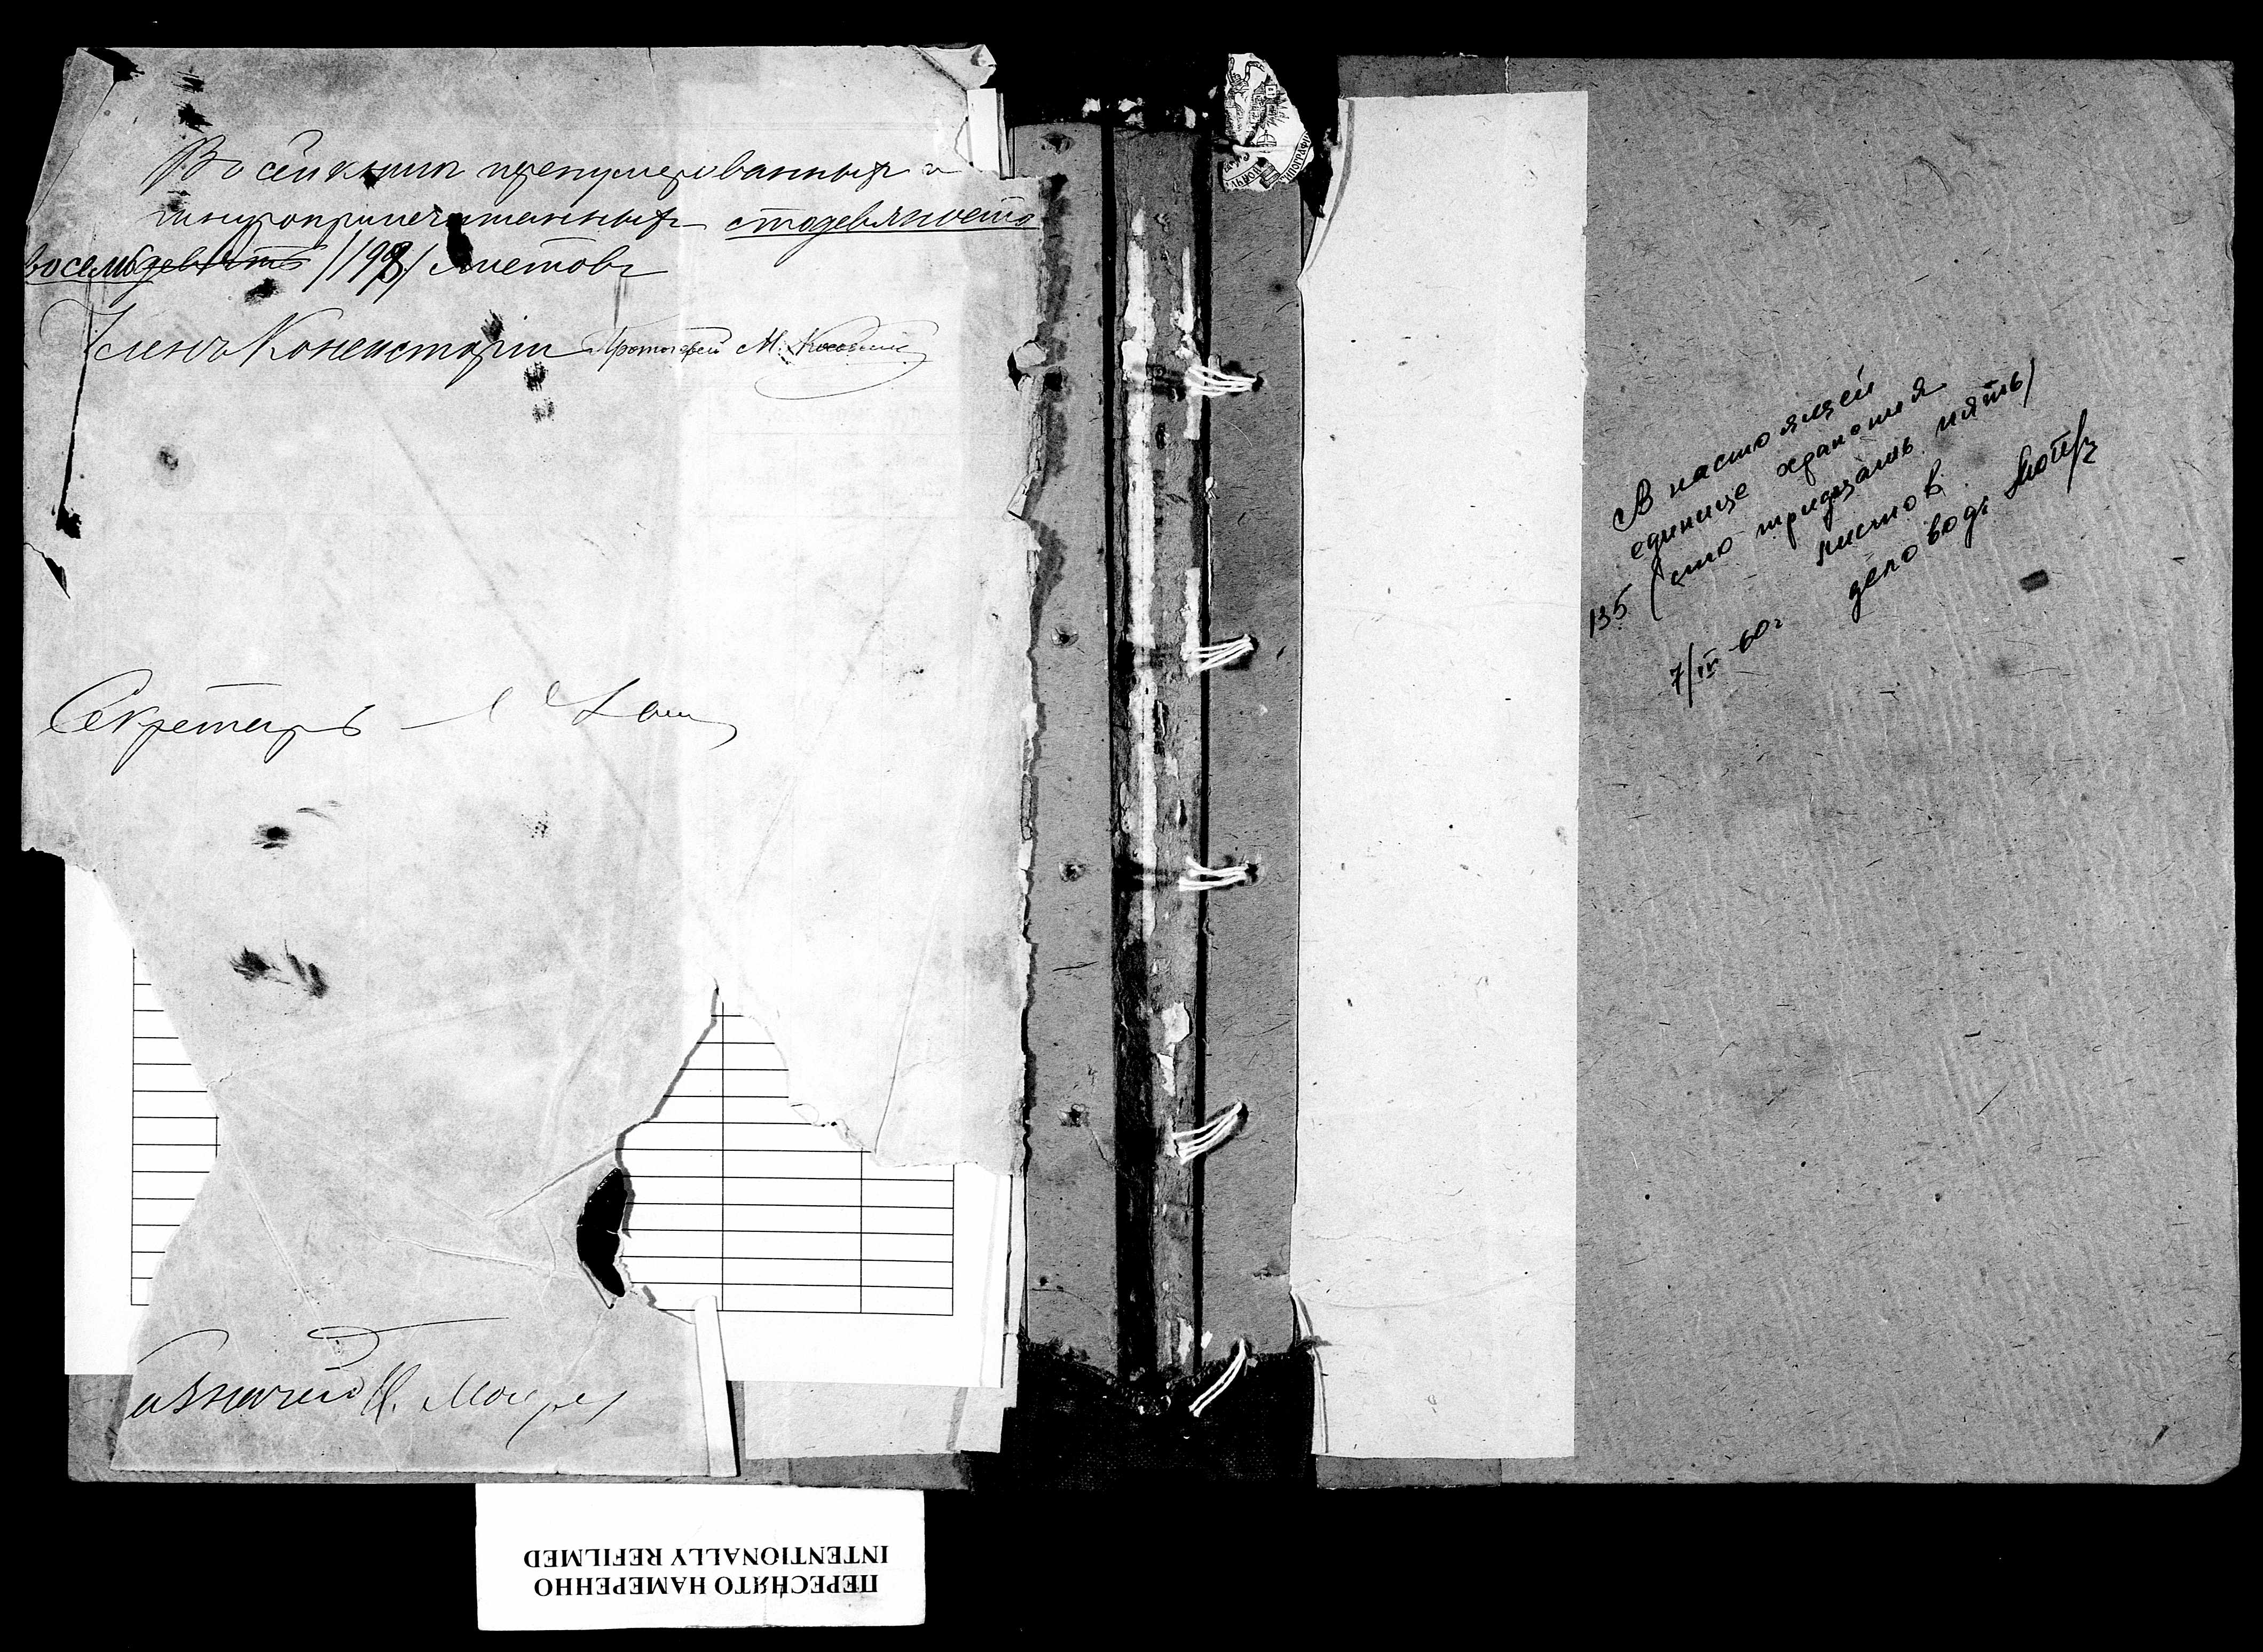 Въ сей книгѣ пренумерованныхъ и
шнуроприпечатанныхъ стодевяносто
восемь девять /198/ листовъ
Членъ Консисторіи Протоіерей М.
Секретарь
В настоящей
единице хранения
135 (сто тридцать пять)
листов
деловод:
7/IV-60г
ПЕРЕСНЯТО НАМЕРЕННО
INTENTIONALLY REFILMED